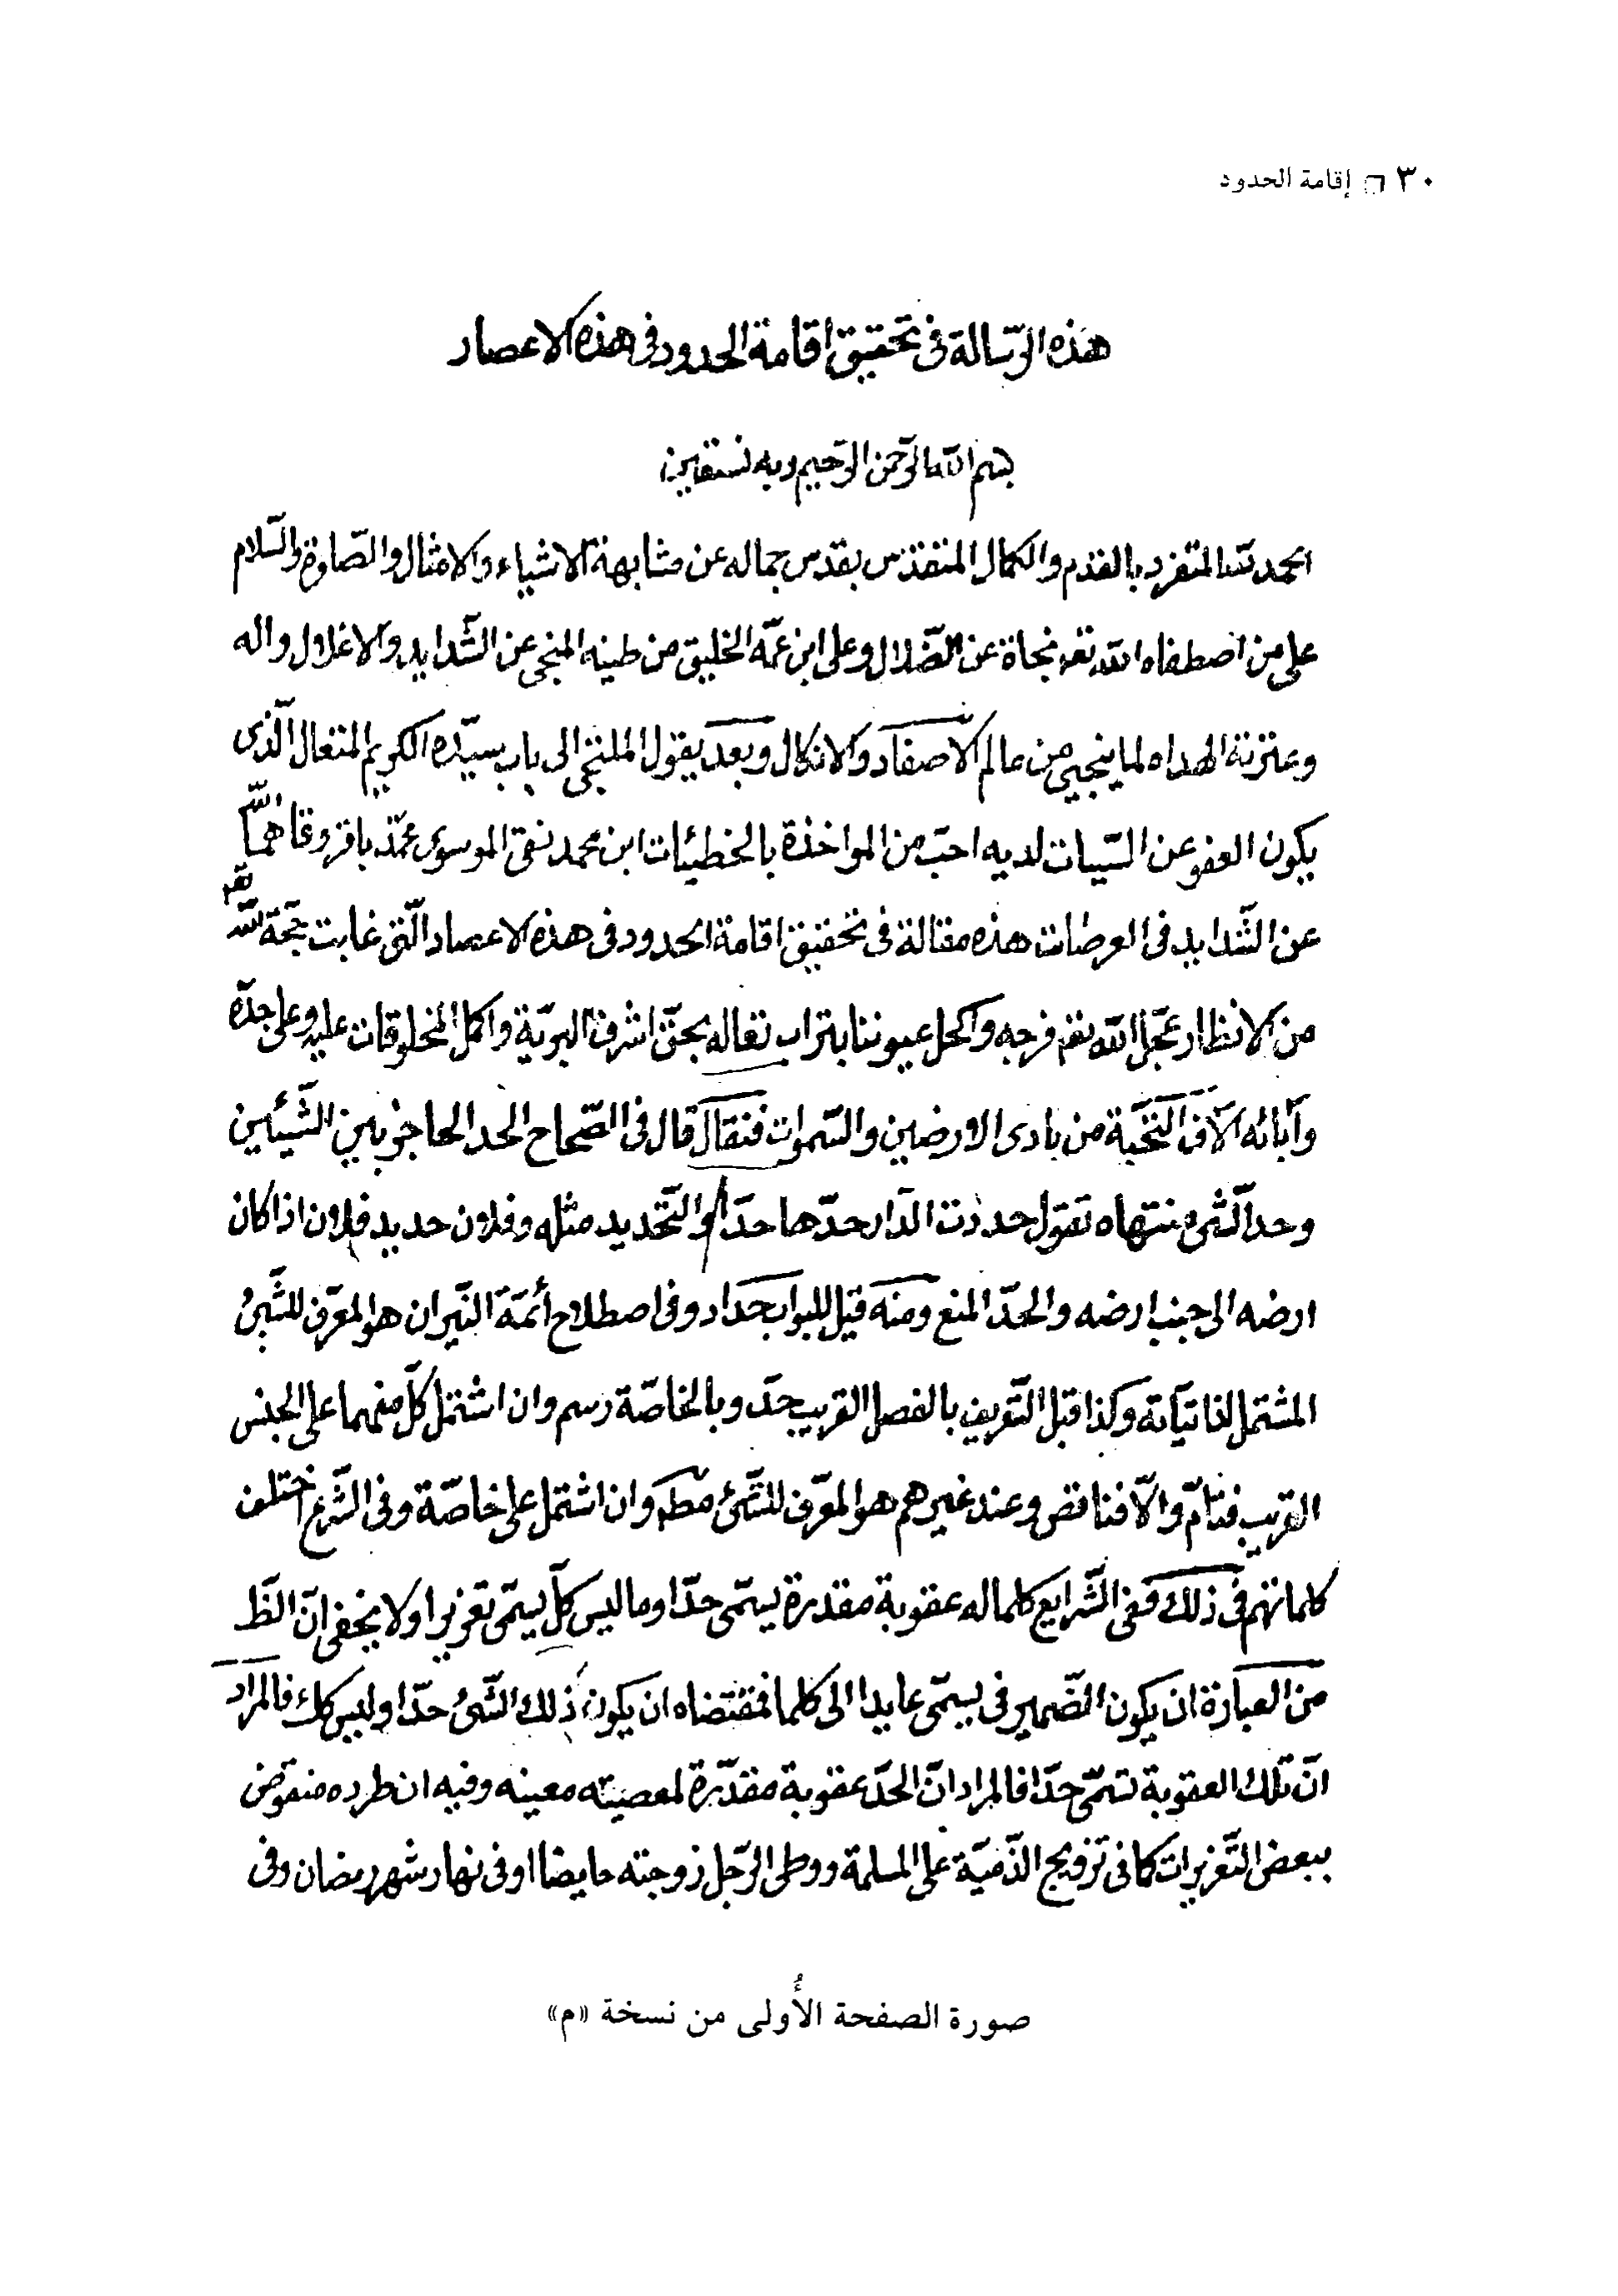 ٣٠ □ إقامة الحدود
هذه الرّسالة فى تحقيق اقامة الحدود فى هذه الاعصار
بسم الله الرّحمن الرّحيم وبه نستعين
الحمد لله المتفرد بالقدم والكمال المتقدّس بقدس جماله عن مشابهة الاشياء والامثال والصّلوة والسّلام
على من اصطفاه الله تعه نجاة عن الضّلال وعلى ابن عمّه الخليق من طينه المنجى عن الشّدايد والاغلال واله
وعترته الهداه لما ينجيى من عالم الاصفاد والانكال وبعد يقول الملتجى الى باب سيّده الكريم المتعال الّذى
يكون العفو عن السّيات لديه احبّ من المواخذة بالخطيئات ابن محمد نقى الموسوى محمّد باقر وقاهما الله
تعه
عن الشّدايد فى العرصات هذه مقالة فى تحقيق اقامة الحدود فى هذه الاعصار الّتى غابت حجّة الله
من الانظار عجّل الله تعه فرجه واكحل عيوننا بتراب نعاله بحقّ اشرف البريّة واكمل المخلوقات عليه وعلى جدّه
وآبائه آلاف التّحيّة من بادى الارضين والسّموات فنقال قال فى الصّحاح الحد الحاجز بين الشّيئين
وحد الّشى منتهاه تقول حددت الدّار حدّها حدّا والتّحديد مثله وفلان حديد فلان اذا كان
ارضه الى جنب ارضه والحدّ المنع ومنه قيل للبواب حداد وفى اصطلاح أئمّة النّيران هو المعرّف للشّىءُ
المشتمل لذاتيّاته وكذا قيل التّعريف بالفصل القريب حدّ وبالخاصّة رسم وان اشتمل كلّ منهما على الجنس
القريب فتامّ والّا فناقص وعند غيرهم هو المعرّف للشّىء مطه وان اشتمل على خاصّة وفى الشّرع اختلف
كلماتهم فى ذلك ففى الشّرايع كلما له عقوبة مقدرة يسمّى حدّا وما ليس كلّ يسمّى تعزيرا ولا يخفى انّ الظّ
من العبارة ان يكون الضّمير فى يسمّى عايدا الى كلما فمقتضاه ان يكون ذلك الشّىءُ حدّا وليس كك فالمراد
انّ تلك العقوبة تسمّى حدّا فالمراد انّ الحدّ عقوبة مقدّرة لمعصيته معينه وفيه ان طرده منقوض
ببعض التّعزيرات كما فى تزويج الذّميّة على المسلمة ووطى الرّجل زوجته حايضا او فى نهار شهر رمضان وفى
صورة الصفحة الأُولى من نسخة «م»